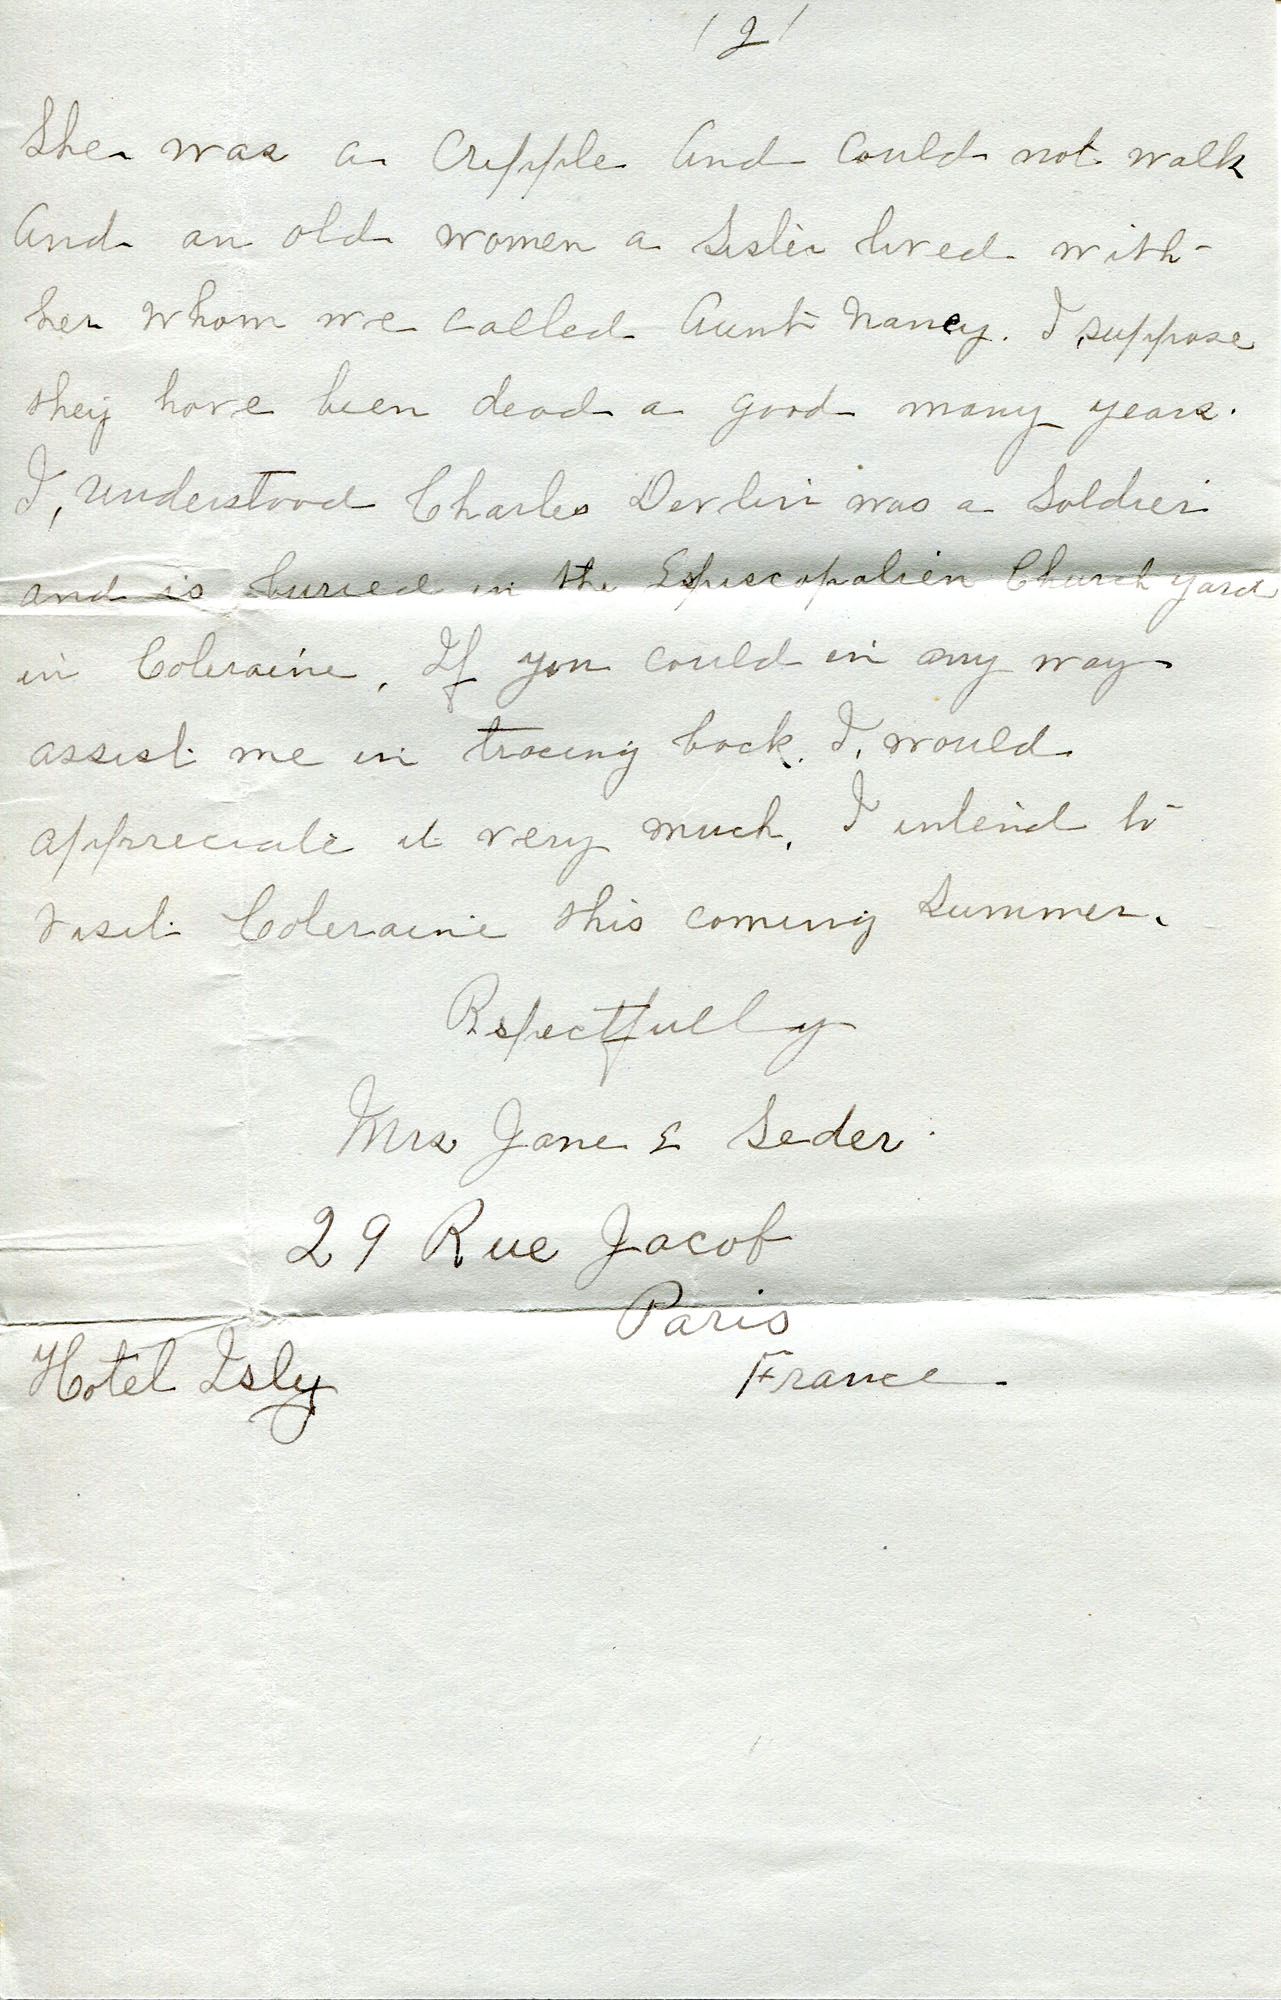 /2/
She was a Cripple And Could not walk
And an old women a Sister lived with
her whom we called Aunt Nancy. I suppose
they have been dead a good many years.
I, understood Charles Devlin was a Soldier
and is buried in the Episcopalien Church yard
in Coleraine. If you could in any way
assist me in tracing back. I, would
appreciate it very much. I intend to
visit Coleraine this coming Summer.
Rspectfully
Mrs Jane E Seder.
29 Rue Jacob
Paris
Hotel Isly
France.